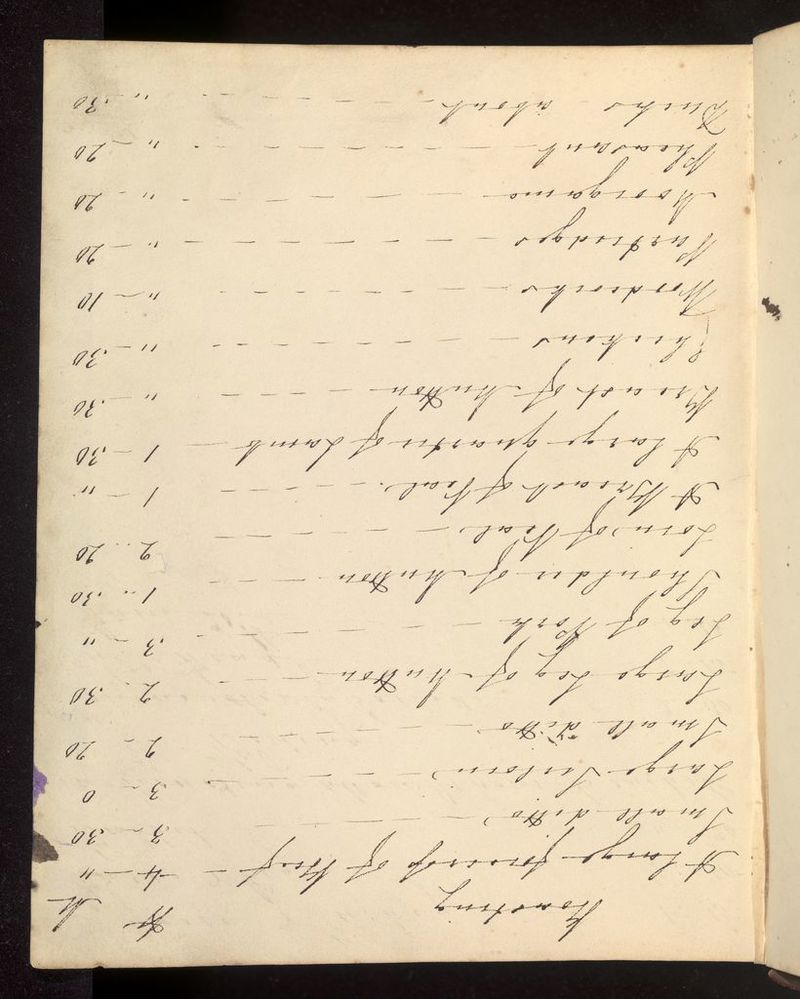 Roasting
Hr M
A large fircap of Beef - 4 - "
Small ditto 3 - 30
Large Sirloin 3 - 0
Small ditto 2 - 20
Large Leg of Mutton 2 .. 30
Leg of Pork 3 - "
Shoulder of Mutton 1 .. 30
Loin of Veal 2 .. 20
A Breast of Veal 1 - "
A large quarter of Lamb 1 - 30
Breast of Mutton " - 30
Chickens " - 30
Woodcocks " - 10
Partridges " - 20
Moorgame " - 20
Pheasant " - 20
Ducks about " - 30